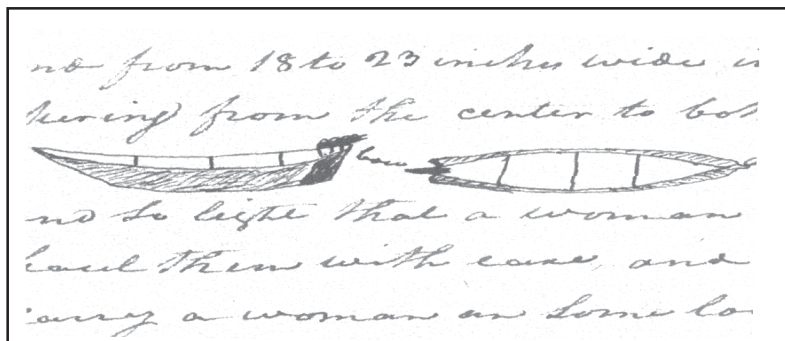 nd from 18 to 23 inches wide i
pering from the center to bot
bow
nd so light that a woman
haul them with ease, and
carry a woman an some lo